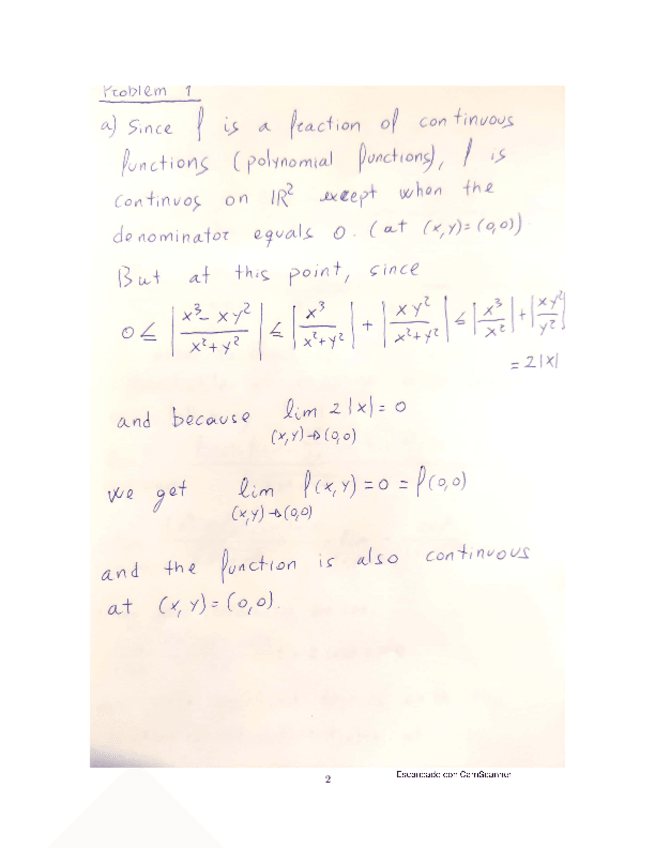 Problem 1
a) Since f is a fraction of continuous
functions (polynomial functions), f is
continuos on ℝ² except when the
denominator equals 0. (at (x,y)=(0,0))
But at this point, since
0 ≤ |(x³ - xy²)/(x²+y²)| ≤ |x³/(x²+y²)| + |xy²/(x²+y²)| ≤ |x³/x²| + |xy²/y²|
= 2|x|
and because lim 2|x| = 0
(x,y)→(0,0)
we get lim f(x,y) = 0 = f(0,0)
(x,y)→(0,0)
and the function is also continuous
at (x,y)=(0,0).
2
Escaneado con CamScanner